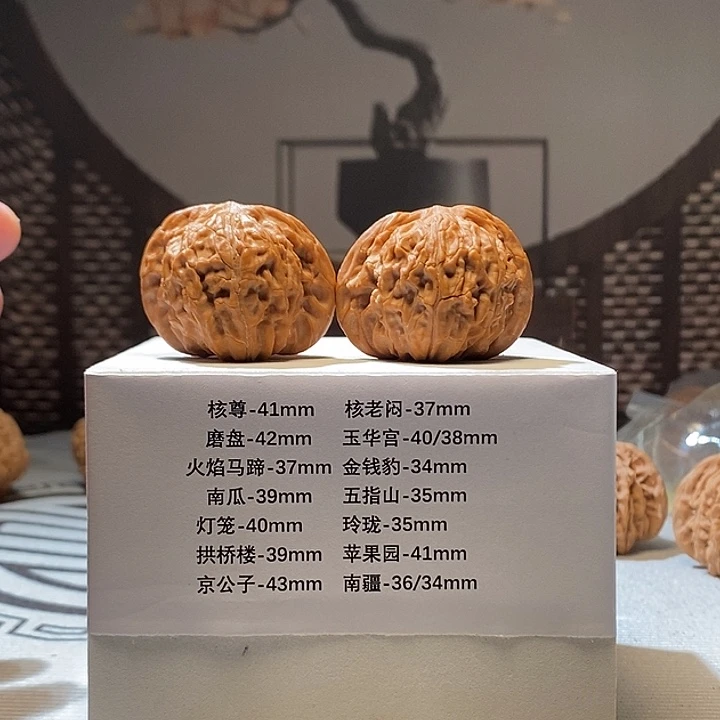 核尊-41mm 核老闷-37mm
磨盘-42mm 玉华宫-40/38mm
火焰马蹄-37mm 金钱豹-34mm
南瓜-39mm 五指山-35mm
灯笼-40mm 玲珑-35mm
拱桥楼-39mm 苹果园-41mm
京公子-43mm 南疆-36/34mm